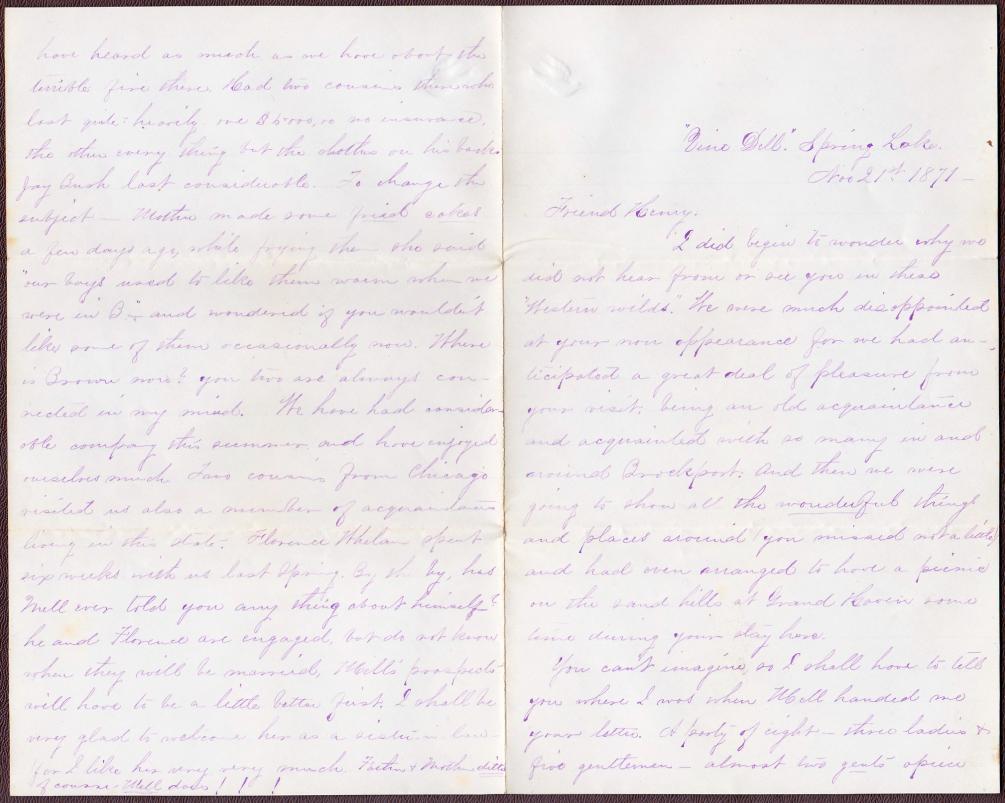 "Vine Dell." Spring Lake.
Nov 21st 1871 —
Friend Henry.
I did begin to wonder why we
did not hear from or see you in these
"Western wilds." We were much disappointed
at your non appearance for we had an-
ticipated a great deal of pleasure from
your visit, being an old acquaintance
and acquainted with so many in and
around Brockport. And then we were
going to show all the wonderful things
and places around (you missed not a little)
and had even arranged to have a picnic
on the sand hills at Grand Haven some
time during your stay here.
You can't imagine, so I shall have to tell
you where I was when Mell handed me
your letter. A party of eight — three ladies &
five gentlemen — almost two gents apiece
have heard as much as we have about the
terrible fire there. Had two cousins there who
lost quite heavily one $5000,00 no insurance,
the other every thing but the clothes on his back.
Jay Bush lost considerable. To change the
subject — Mother made some fried cakes
a few days ago, while frying them she said
"our boys used to like them warm when we
were in B—" and wondered if you wouldn't
like some of them occasionally now. Where
is Brown now? you two are always con-
nected in my mind. We have had consider-
able company this summer and have enjoyed
ourselves much. Two cousins from Chicago
visited us also a number of acquaintances
living in this state. Florence Whelan spent
six weeks with us last Spring. By the by, has
Mell ever told you any thing about himself?
he and Florence are engaged, but do not know
when they will be married, Mell's prospects
will have to be a little better first. I shall be
very glad to welcome her as a sister in law—
for I like her very very much. Father & Mother ditto
of course Mell does! ! !